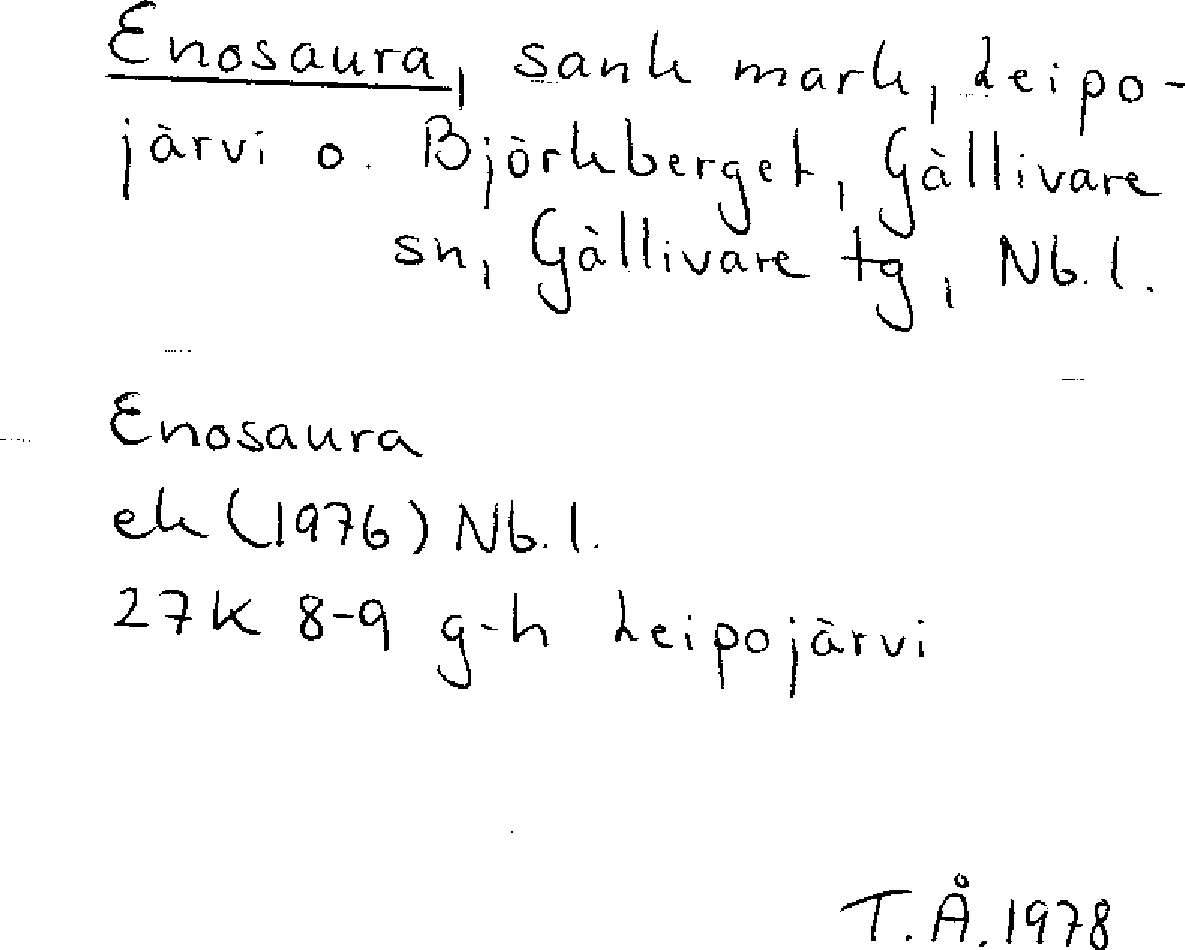 Enosaura, sank mark, Leipo-
järvi o. Björkberget, Gällivare
sn, Gällivare tg, Nb. l.
Enosaura
ek (1976) Nb. l.
27K 8-9 g-h Leipojärvi
T.Å. 1978